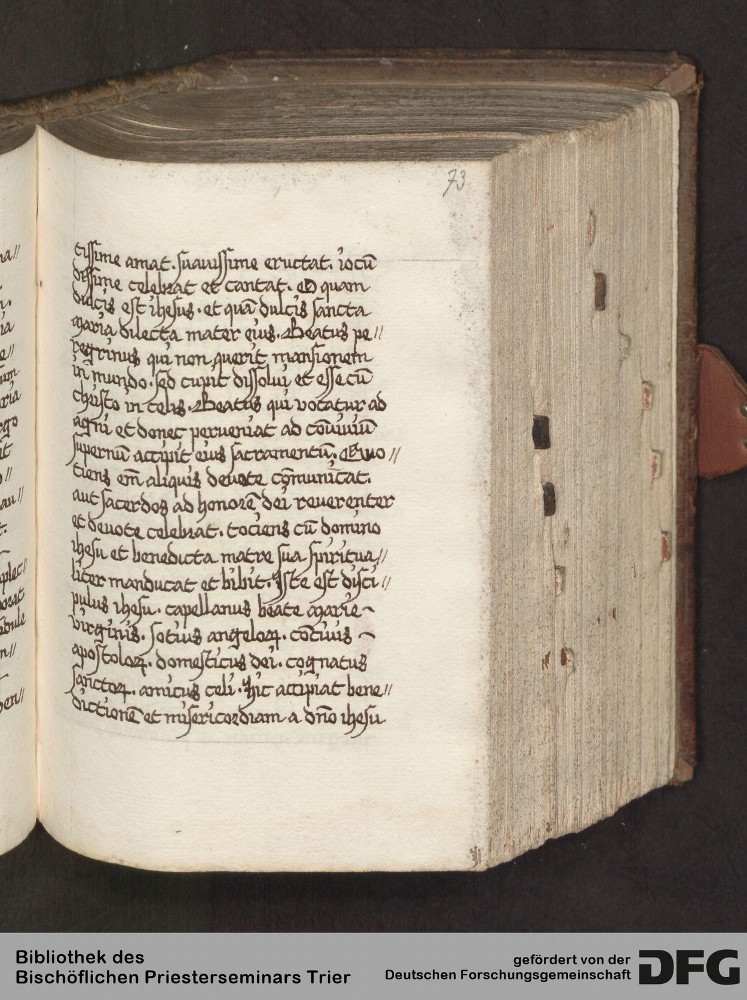 73
tissime amat. suauissime eructat. iocū
dissime celebrat et cantat. O quam
dulcis est ihesus. et quā dulcis sancta
maria dilecta mater eius. Beatus pe//
regrinus qui non querit mansionem
in mundo. sed cupit dissolui et esse cū
christo in celis. Beatus qui vocatur ad
agni et donec perueniat ad cōuiuiū
supernū accipit eius sacramentū. Quo//
tiens em̄ aliquis deuote cōmunicat.
aut sacerdos ad honorē dei reuerenter
et deuote celebrat. tociens cū domino
ihesu et benedicta matre sua spiritua//
liter manducat et bibit. Iste est disci//
pulus ihesu. capellanus beate marie~
virginis. sotius angeloꝝ. cōciuis ~
apostoloꝝ. domesticus dei. cognatus
sanctoꝝ. amicus celi. Hic accipiat bene//
dictionē et misericordiam a dn̄o ihesu
Bibliothek des
Bischöflichen Priesterseminars Trier
gefördert von der
Deutschen Forschungsgemeinschaft
DFG